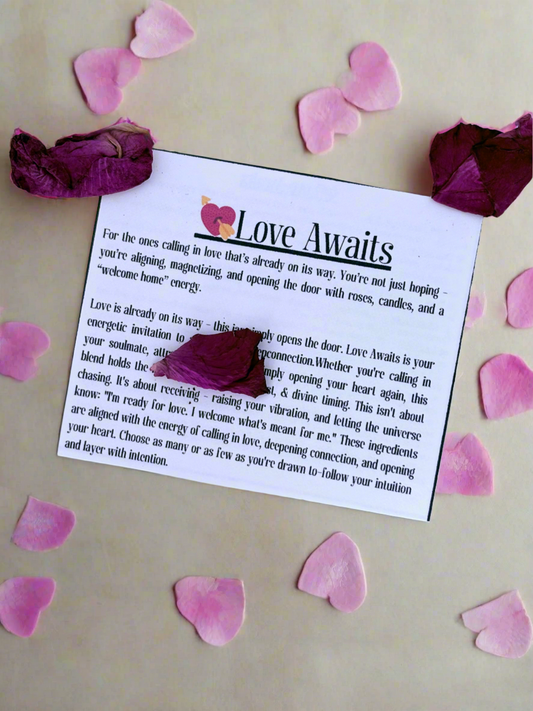 Love Awaits
For the ones calling in love that's already on its way. You're not just hoping -
you're aligning, magnetizing, and opening the door with roses, candles, and a
"welcome home" energy.
Love is already on its way - this opens the door. Love Awaits is your
energetic invitation to Whether you're calling in
your soulmate, opening your heart again, this
blend holds the & divine timing. This isn't about
chasing. It's about receiving - raising your vibration, and letting the universe
know: "I'm ready for love. I welcome what's meant for me." These ingredients
are aligned with the energy of calling in love, deepening connection, and opening
your heart. Choose as many or as few as you're drawn to-follow your intuition
and layer with intention.